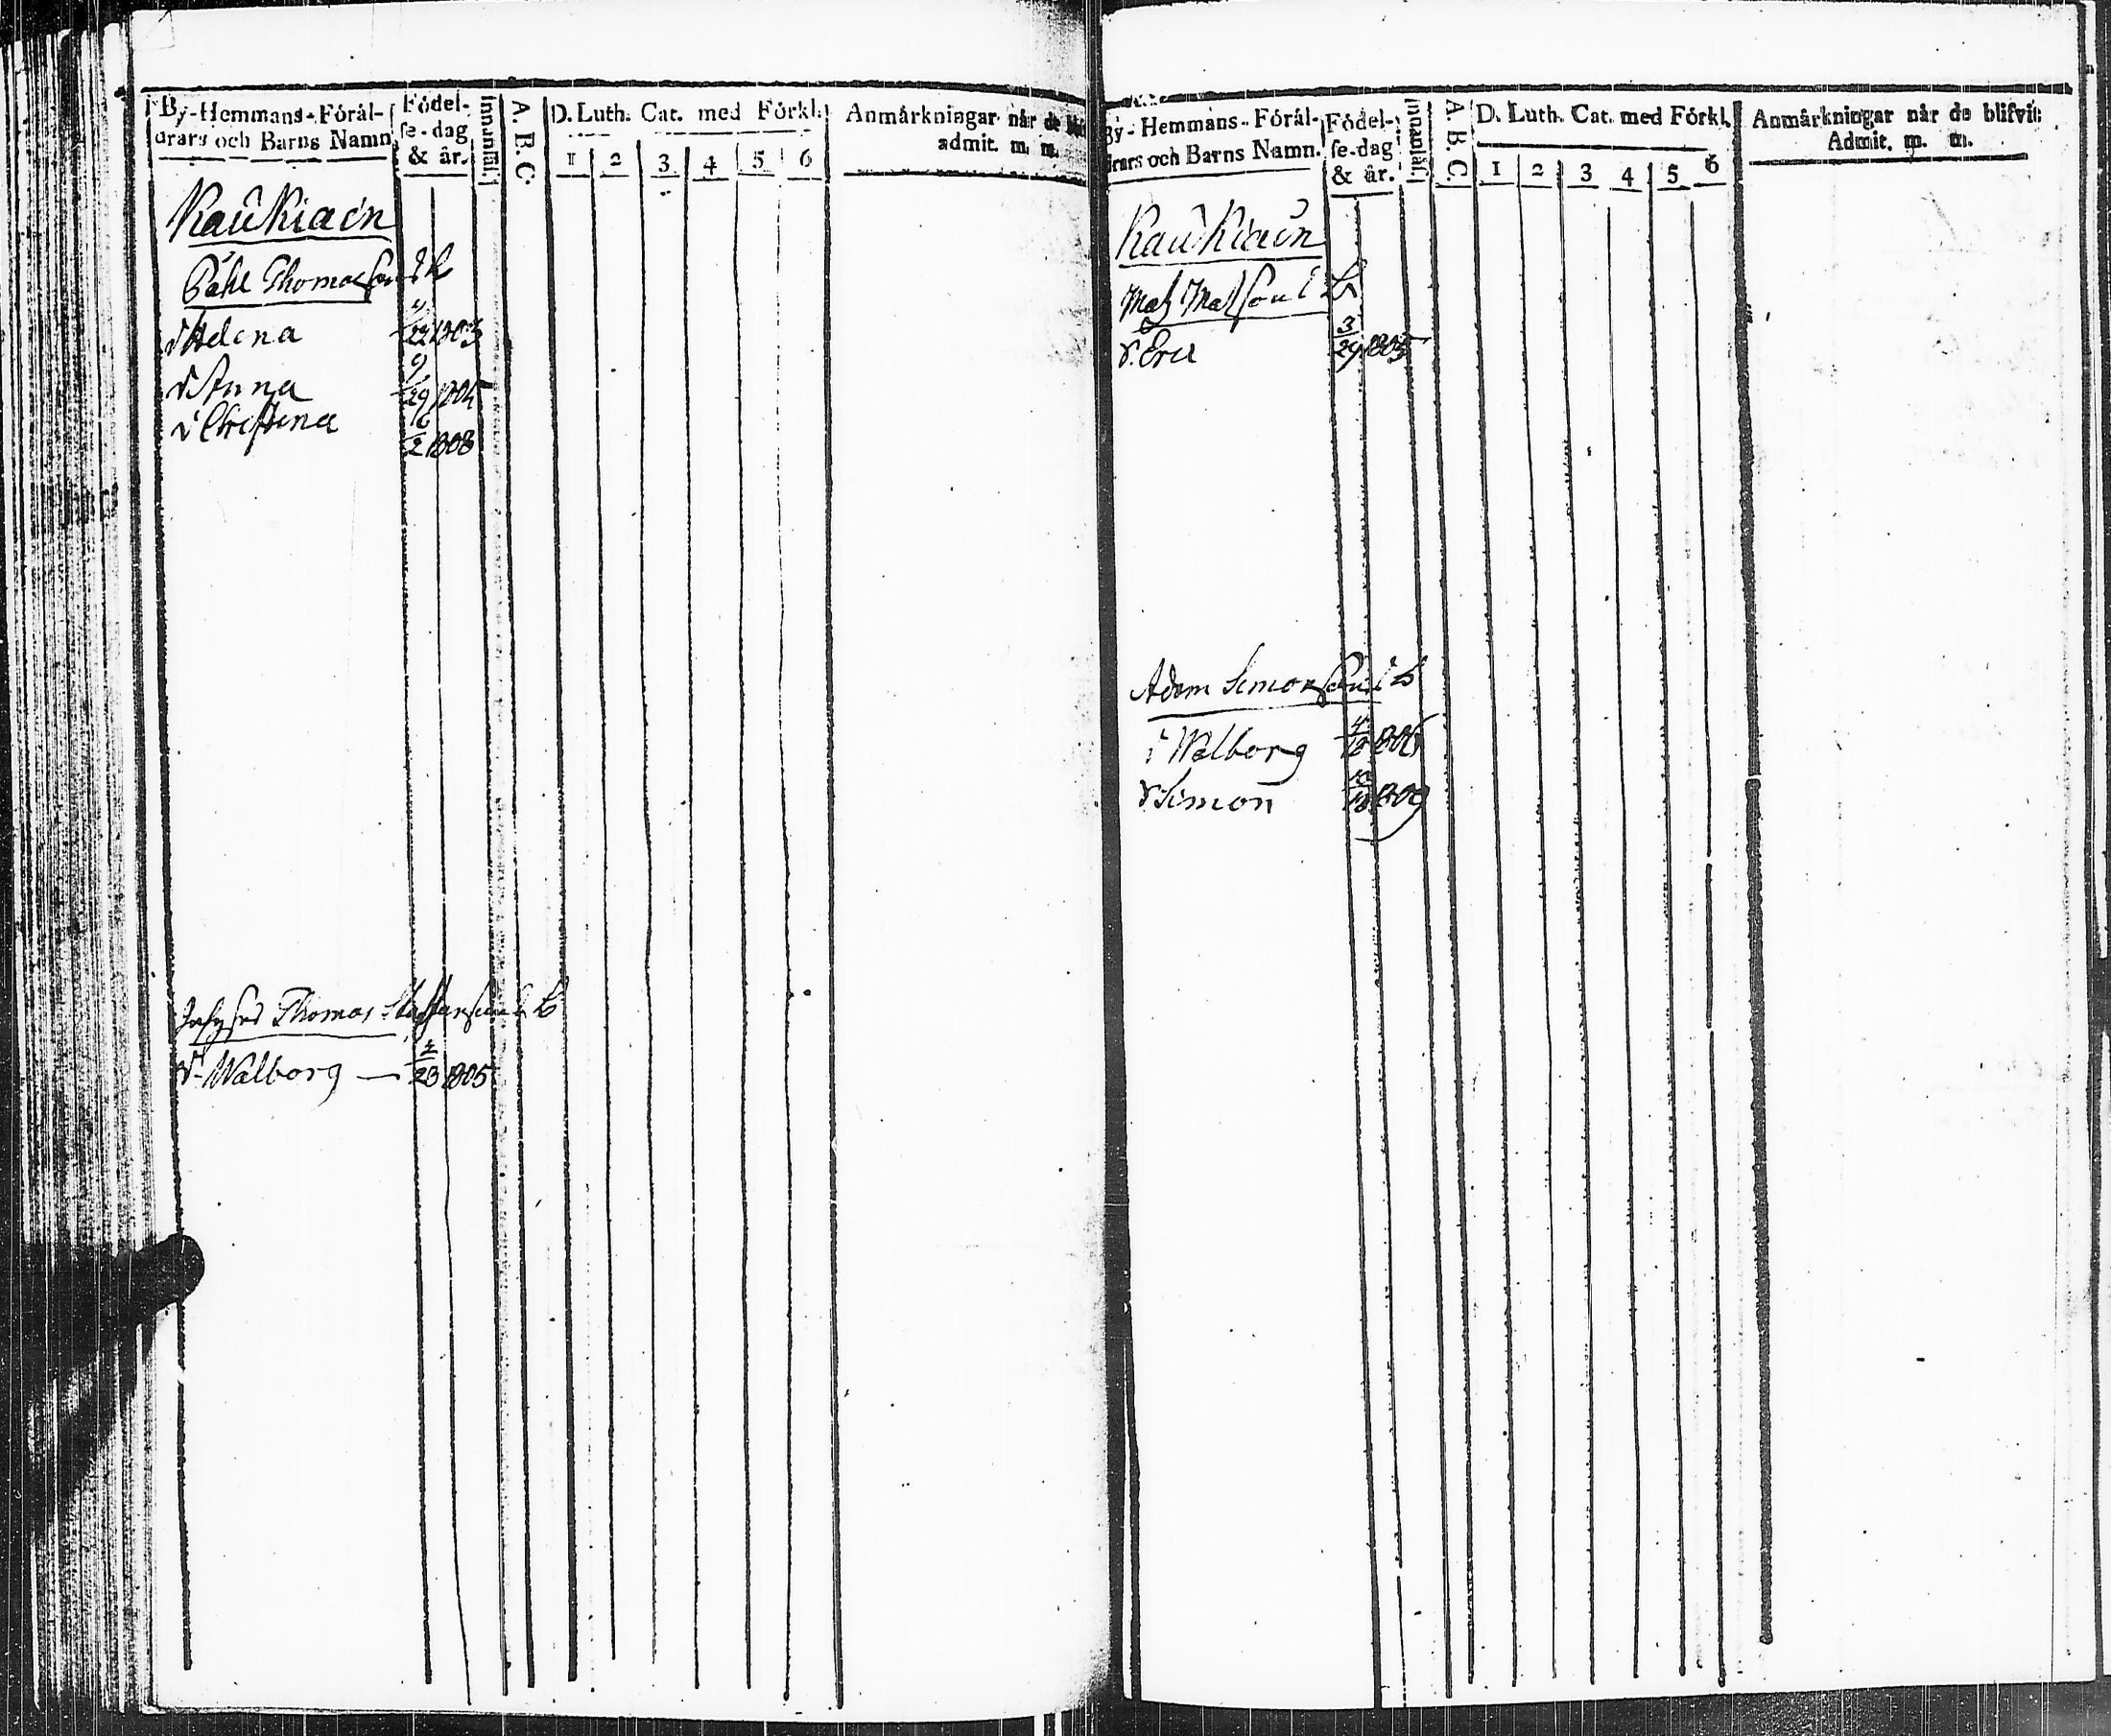 By-Hemmans-Föräl-
drars och Barns Namn
Födel-
se-dag
& år.
Innanläs.
A. B. C.
D. Luth. Cat. med Förkl.
1 2 3 4 5 6
Anmärkningar när de
admit. m. m.
Kaukiain
Påhl Thomasson
Helena 22 1803
9
Anna 29
Christina
2 1808
Thomas
Walborg — 23 1805
By-Hemmans-Föräl-
drars och Barns Namn.
Födel-
se-dag
& år.
Innanläs.
A. B. C.
D. Luth. Cat. med Förkl.
1 2 3 4 5 6
Anmärkningar när de blifvit
Admit. m. m.
Kaukiain
Mats Matsson
3
Eric 29 1805
Adam Simonsson
Walborg
Simon 1809